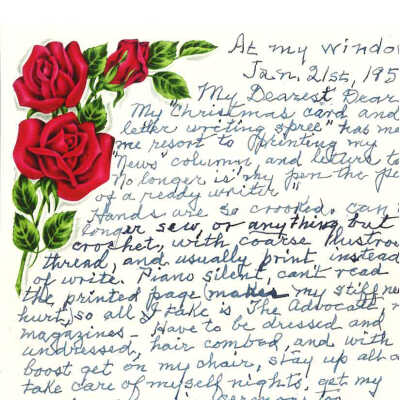 At my window
Jan. 21st, 195
My Dearest Dear
My "Christmas card and
letter writing spree" has ma
me resort to printing my
"News" column, and letters to
No longer is "my pen the pe
of a reddy writer"
Hands are so crooked, can
longer sew, or anything but
crochet, with coarse lustrous
thread, and usually print instead
of write. Piano silent, can't read
the printed page (makes my still
hurt) so all I take is The Advocate
magazines - Have to be dressed and
undressed, hair combed, and with
boost get on my chair, stay up all
take care of myself nights, get my